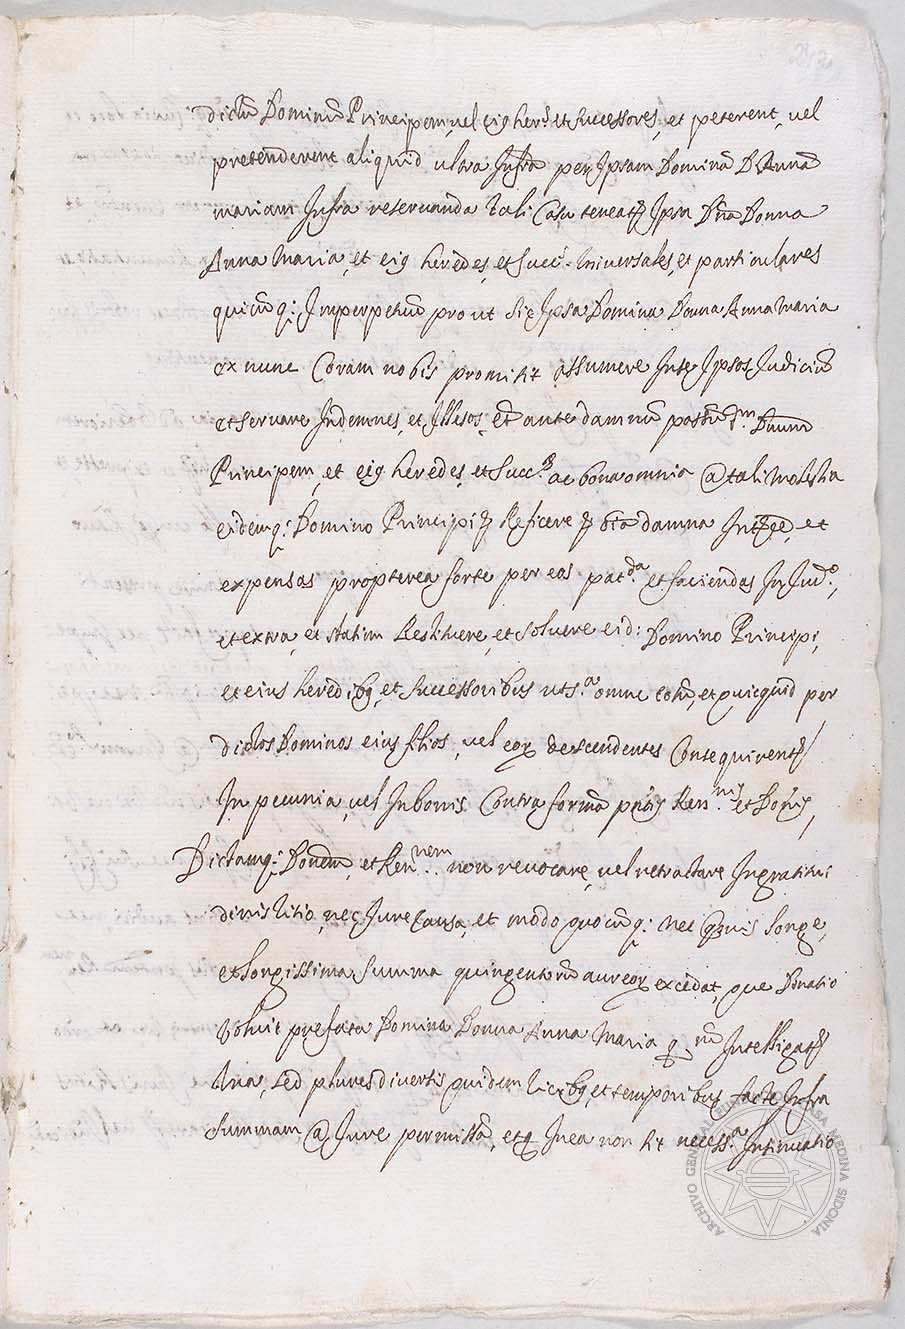 dictũ Dominũ Principem, vel eiq her.s et successores, et peterent, vel
pretenderent aliquid ultra Infra per Ipsam Dominã D. Annã
mariam Infra reservanda tali Casu teneatr Ipsa Dña Donna
Anna Maria, et eiq heredes, et Succ.s Universales, et particulares
quicũq: Imperpetuũ pro ut sic Ipsa Domina Donna Anna Maria
ex nunc Coram nobis promitit assumere Inte Ipsos Judiciũ
et servare Indemnes, et Illesos, Et ante damnum passũ Dnum
Principem, et eiq heredes, et Succ.s ac bona omnia @ tali molestia
eidemq: Domino Principi Reficere oĩa damna et
expensas propterea forte per eos pat.da et faciendas In Jud.o,
et extra, et statim Restituere, et solvere eid: Domino Principi,
et eius heredibq, et Successoribus ut s.a omne totũ, et quicquid per
dictos Dominos eius filios, vel eor descendentes Consequirentr
In pecunia, vel In bonis Contra formã pñtis Ren.nis et Doñis,
Dictamq: Donem, et Ren.nem non revocare, vel retractare Ingratitui
dinis Vitio, nec Jure causa, et modo quocũq: Nec longe,
et longissima summa quingentorũ aureor excedat, que Donatio
Voluit prefata Domina Donna Anna Maria Intelligatr
Una, sed plures diversis quidem vicibq, et temporibus facte Infra
Summam @ Jure permissã, et In ea non sit necess.a Intimatio
ARCHIVO GENERAL FUNDACIÓN CASA MEDINA SIDONIA